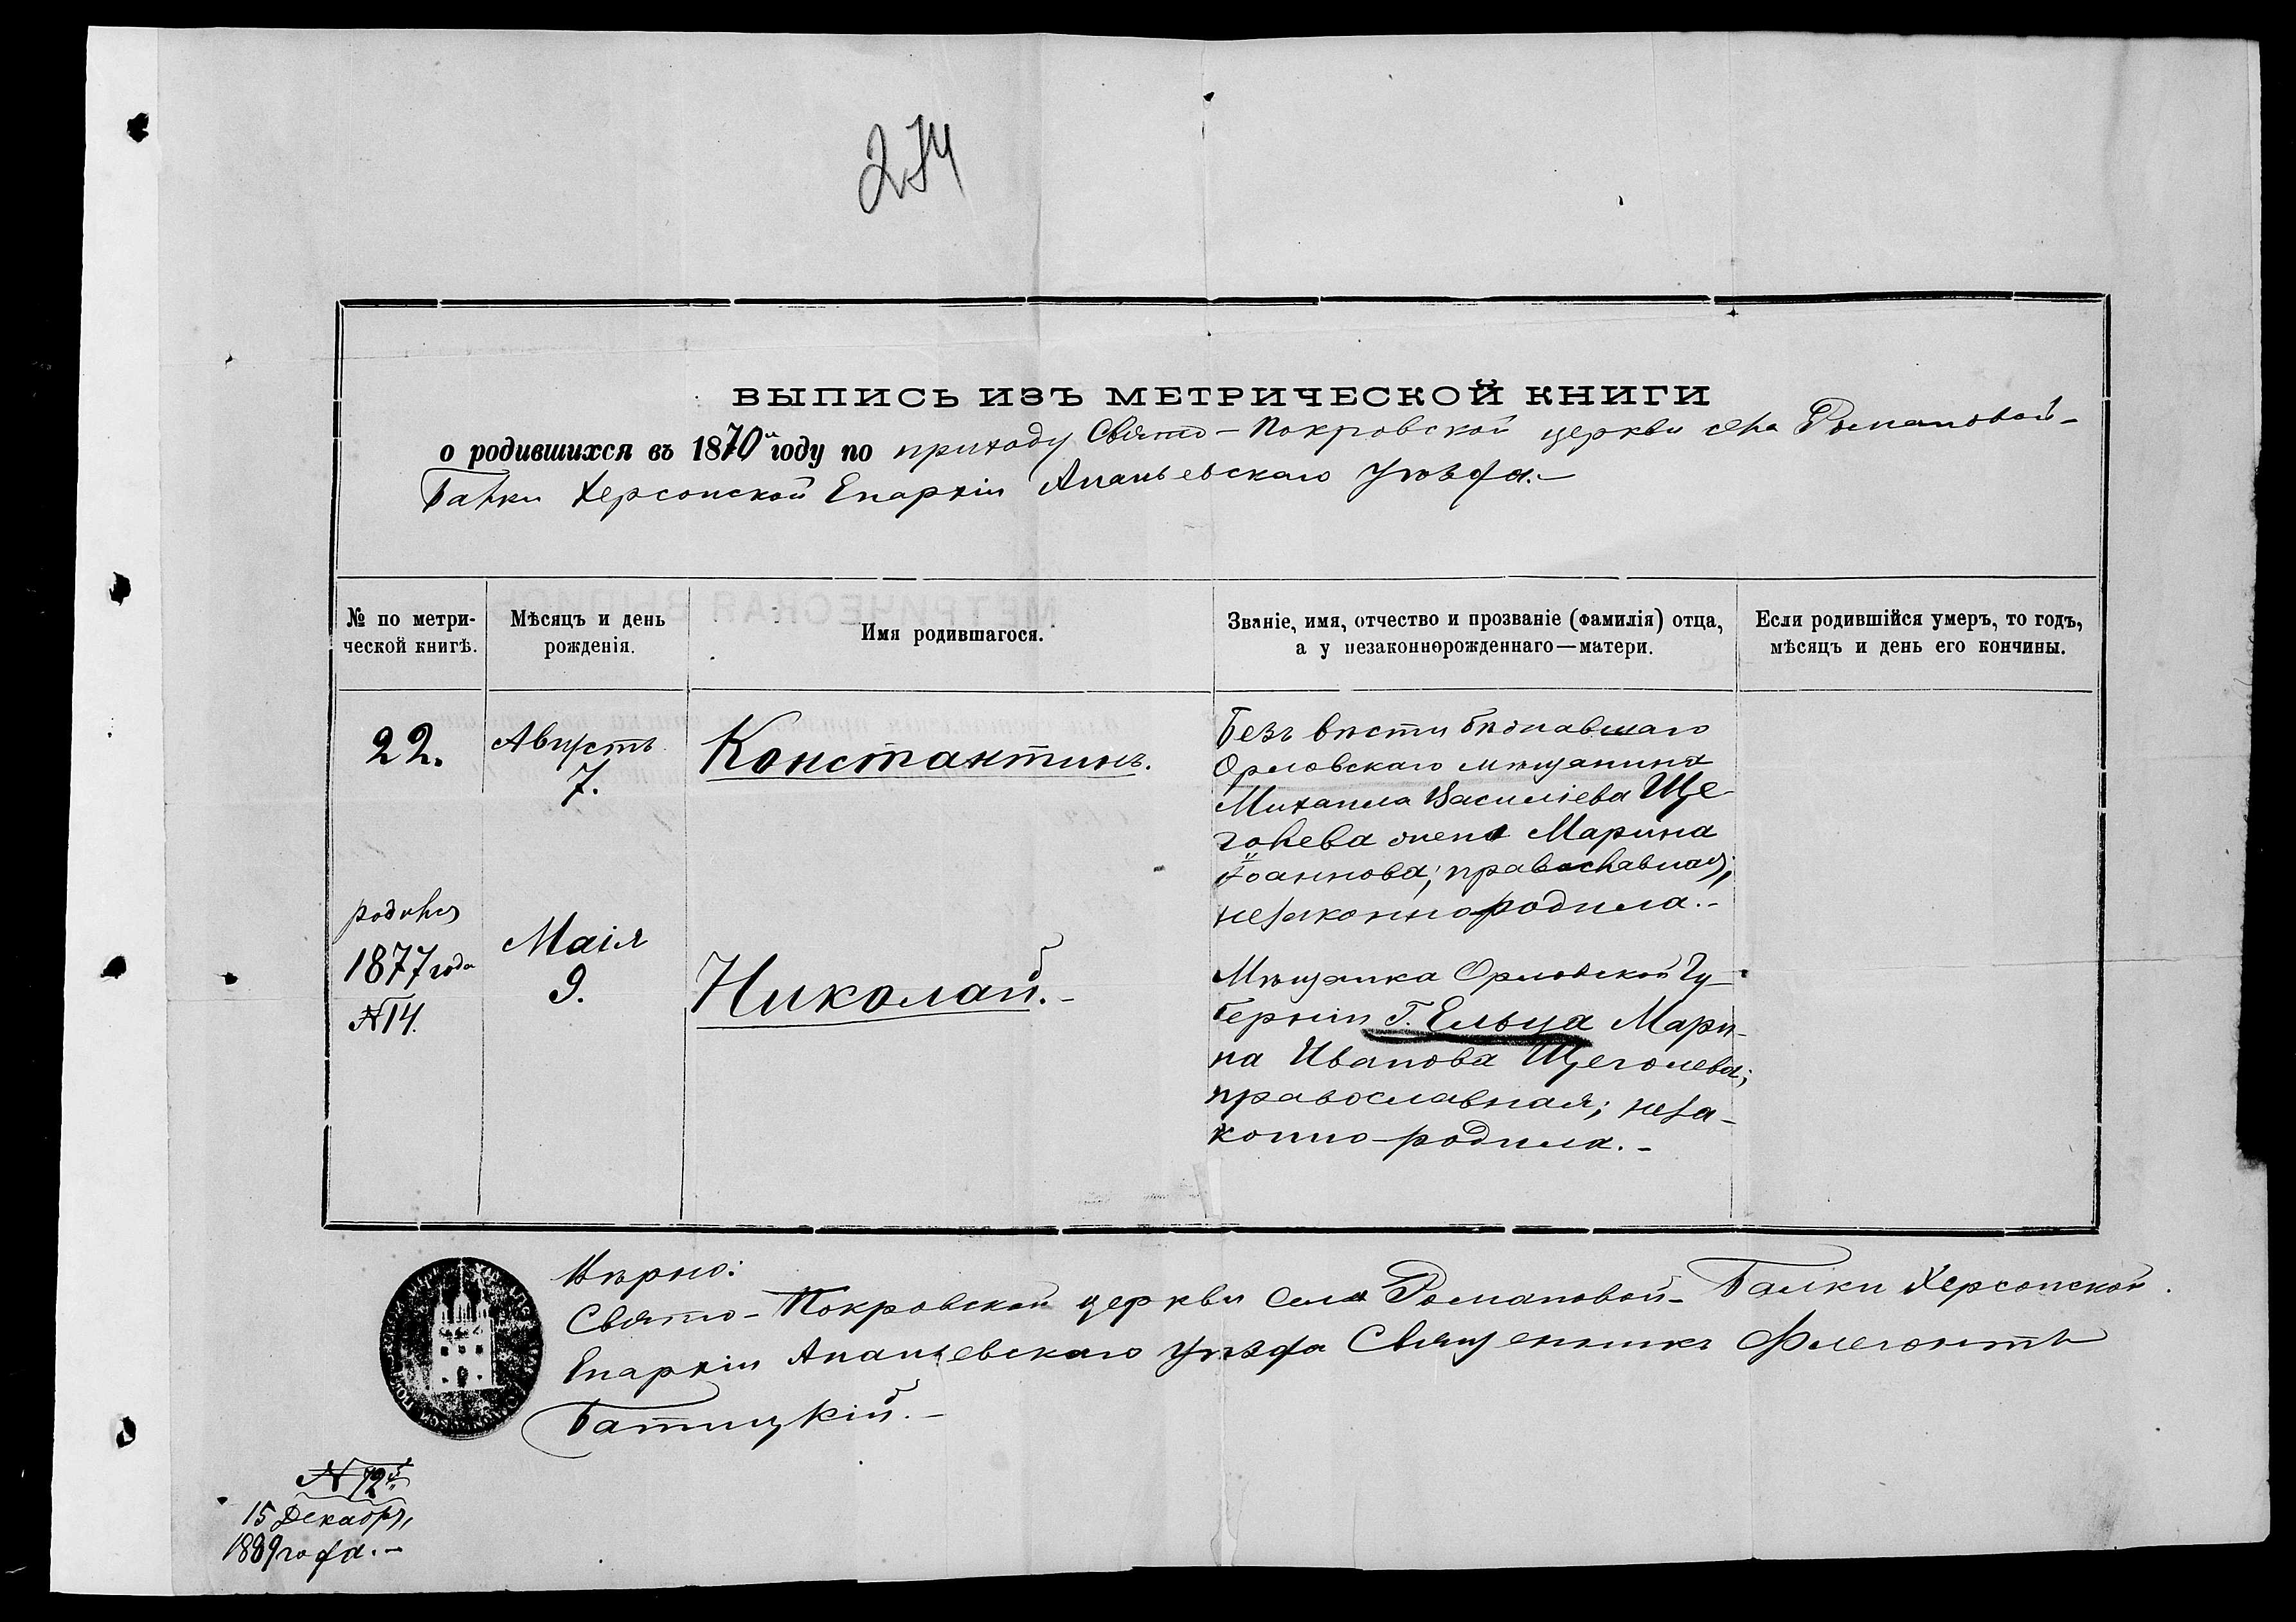 274
ВЫПИСЬ ИЗЪ МЕТРИЧЕСКОЙ КНИГИ
о родившихся въ 1870 году по приходу Свято-Покровской церкви села Романовой-
Балки Херсонской Епархіи Ананьевскаго Уѣзда.—
№ по метри-
ческой книгѣ.
Мѣсяцъ и день
рожденія.
Имя родившагося.
Званіе, имя, отчество и прозваніе (фамилія) отца,
а у незаконнорожденнаго—матери.
Если родившійся умеръ, то годъ,
мѣсяцъ и день его кончины.
22.
Августъ
7.
Константинъ.
Безъ вѣсти
Орловскаго мѣщанина
Михаила Василіева Ще-
голева жена Марина
Іоаннова; православная;
незаконно родила.-
родился
1877 года
N 14.
Маія
9.
Николай.-
Мѣщанка Орловской Гу-
берніи Г. Ельца Мари-
на Иванова Щеголева;
православная; неза-
конно-родила.-
Вѣрно:
Свято-Покровской церкви села Романовой-Балки Херсонской
Епархіи Ананьевскаго уѣзда Священникъ Флегонтъ
Батицкій.-
N 72
15 Декабря
1889 года.-